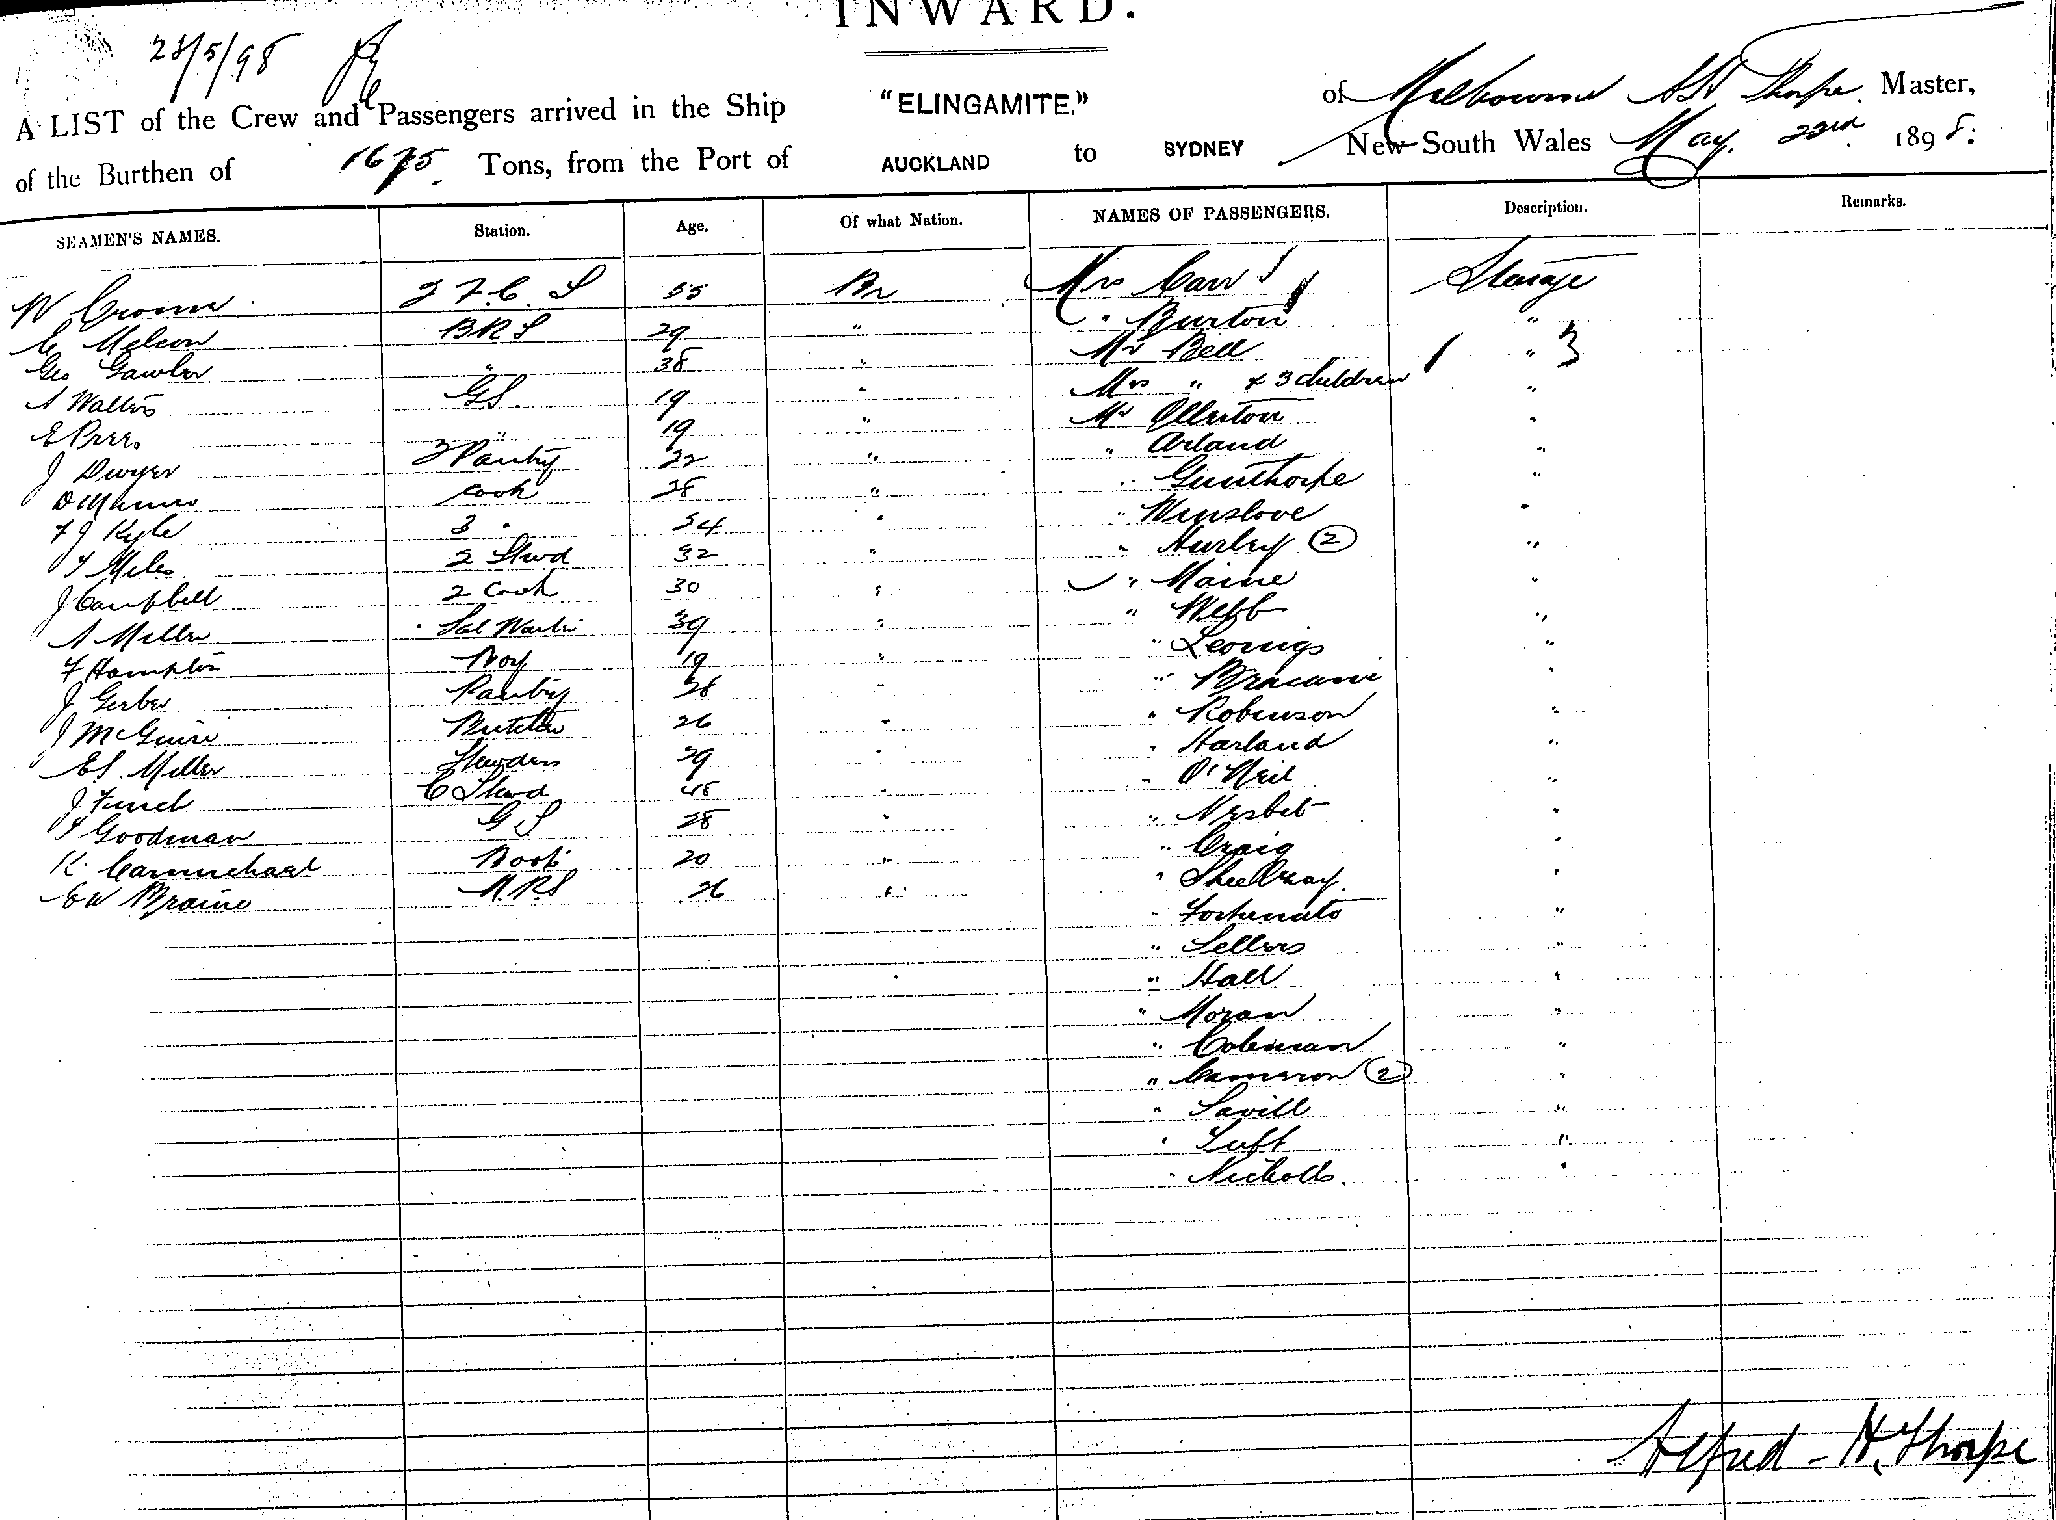 INWARD.
23/5/98
A LIST of the Crew and Passengers arrived in the Ship "ELINGAMITE," of Melbourne A H Thorpe, Master,
of the Burthen of 1675 Tons, from the Port of AUCKLAND to SYDNEY New South Wales May. 22nd 1898:
SEAMEN'S NAMES. Station. Age. Of what Nation. NAMES OF PASSENGERS. Description. Remarks.
W 2 F.C. S 55 Br Mrs Carr Steerage
BRS 29 " " Burton "
Geo Gawler " 38 " Mr Bell " 3
A Walters GS. 19 " Mrs " & 3 children "
E " 19 " Mr Ollerton "
J Dwyer 3 Pantry 22 " " Arland "
D Munro Cook 28 " " Gunthorpe "
F J Kyle 3 " 34 " " Winslove "
T Miles 2 Stwd 32 " " Hurley (2) "
J Campbell 2 Cook 30 " " Maine "
A Miller Sal Waiter 39 " " Webb "
F Hampton Boy 19 " " "
J Gerber Pantry 28 " " "
J McGuire Butcher 26 " " Robinson "
ES. Miller Stewdess 29 " " Harland "
J C Stwd 48 " " O'Neil "
T Goodman G S 28 " " Nesbit "
K. Carmichael 20 " " Craig "
EW Braine M.R.S 26 " " "
" Fortunato "
" Sellers "
" Hall "
" Moran "
" Coleman "
" Cameron (2) "
" Savill "
" Tuft "
" Nicholls. "
Alfred - H. Thorpe